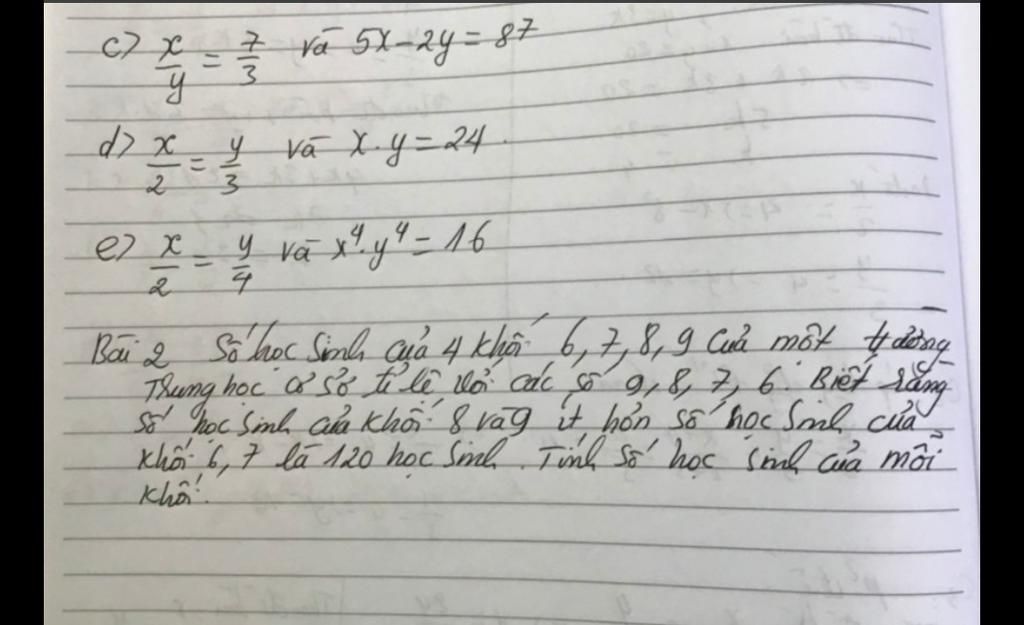 c) x/y = 7/3 và 5x-2y = 87
d) x/2 = y/3 và x.y = 24.
e) x/2 = y/4 và x⁴.y⁴ = 16
Bài 2 Số học sinh của 4 khối 6, 7, 8, 9 của một trường
Trung học cơ sở tỉ lệ với các số 9, 8, 7, 6. Biết rằng
số học sinh của khối 8 và 9 ít hơn số học sinh của
khối 6, 7 là 120 học sinh. Tính số học sinh của mỗi
khối.